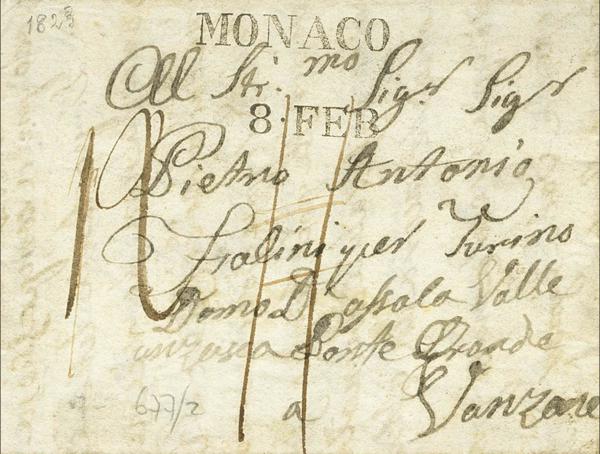 1823
MONACO
All Str.mo Sigr Sigr
8 FEB
Pietro Antonio
per Turino
Domo D'ossola Valle
anzasca Ponte Grande
a Vanzone
677/2